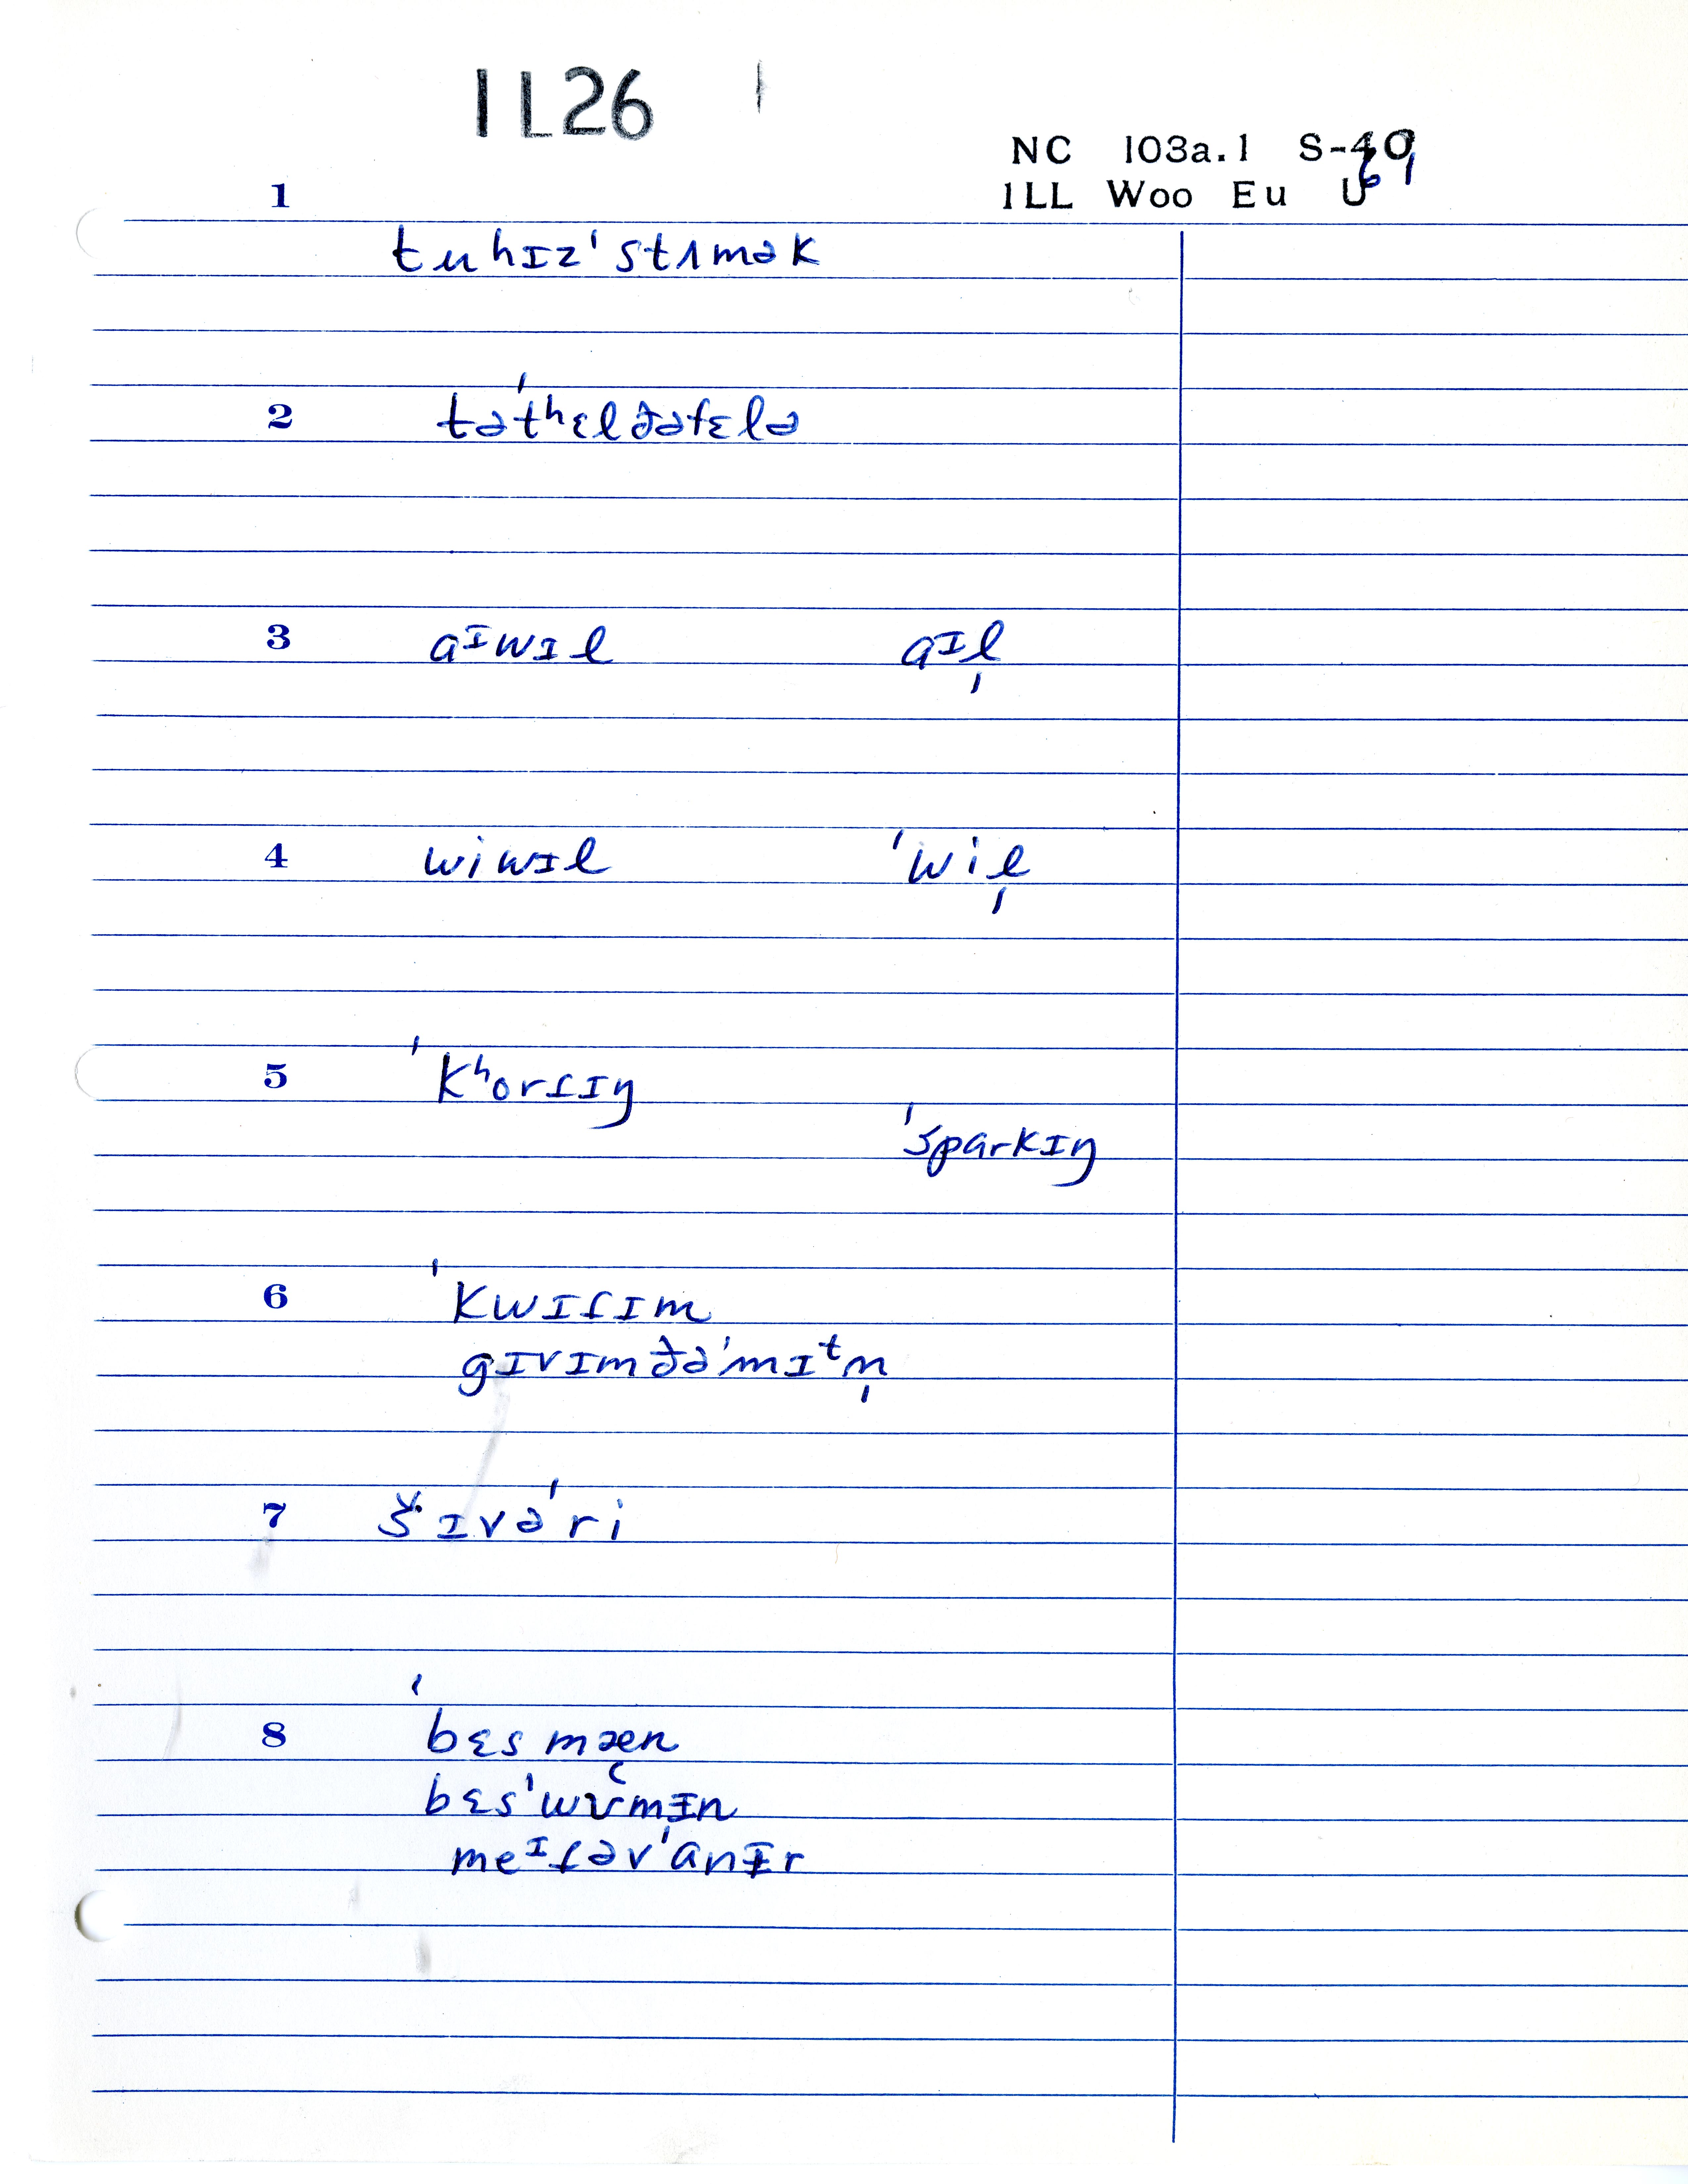 IL26 1
NC 103a.1 S-49
ILL Woo Eu U 61
1
tuhɪzˈstʌmək
2 təˈtʰɛlðəfɛlə
3 aᶦwɪl aᶦl̩
4 wiwɪl ˈwil̩
5 ˈkʰorſɪŋ
ˈsparkɪŋ
6 ˈkwɪſɪm
gɪvɪmðəˈmɪᵗn̩
7 šɪvəˈri
8 ˈbɛsmæn
bɛsˈwʊmɨn
meᶦſəvˈanɨr